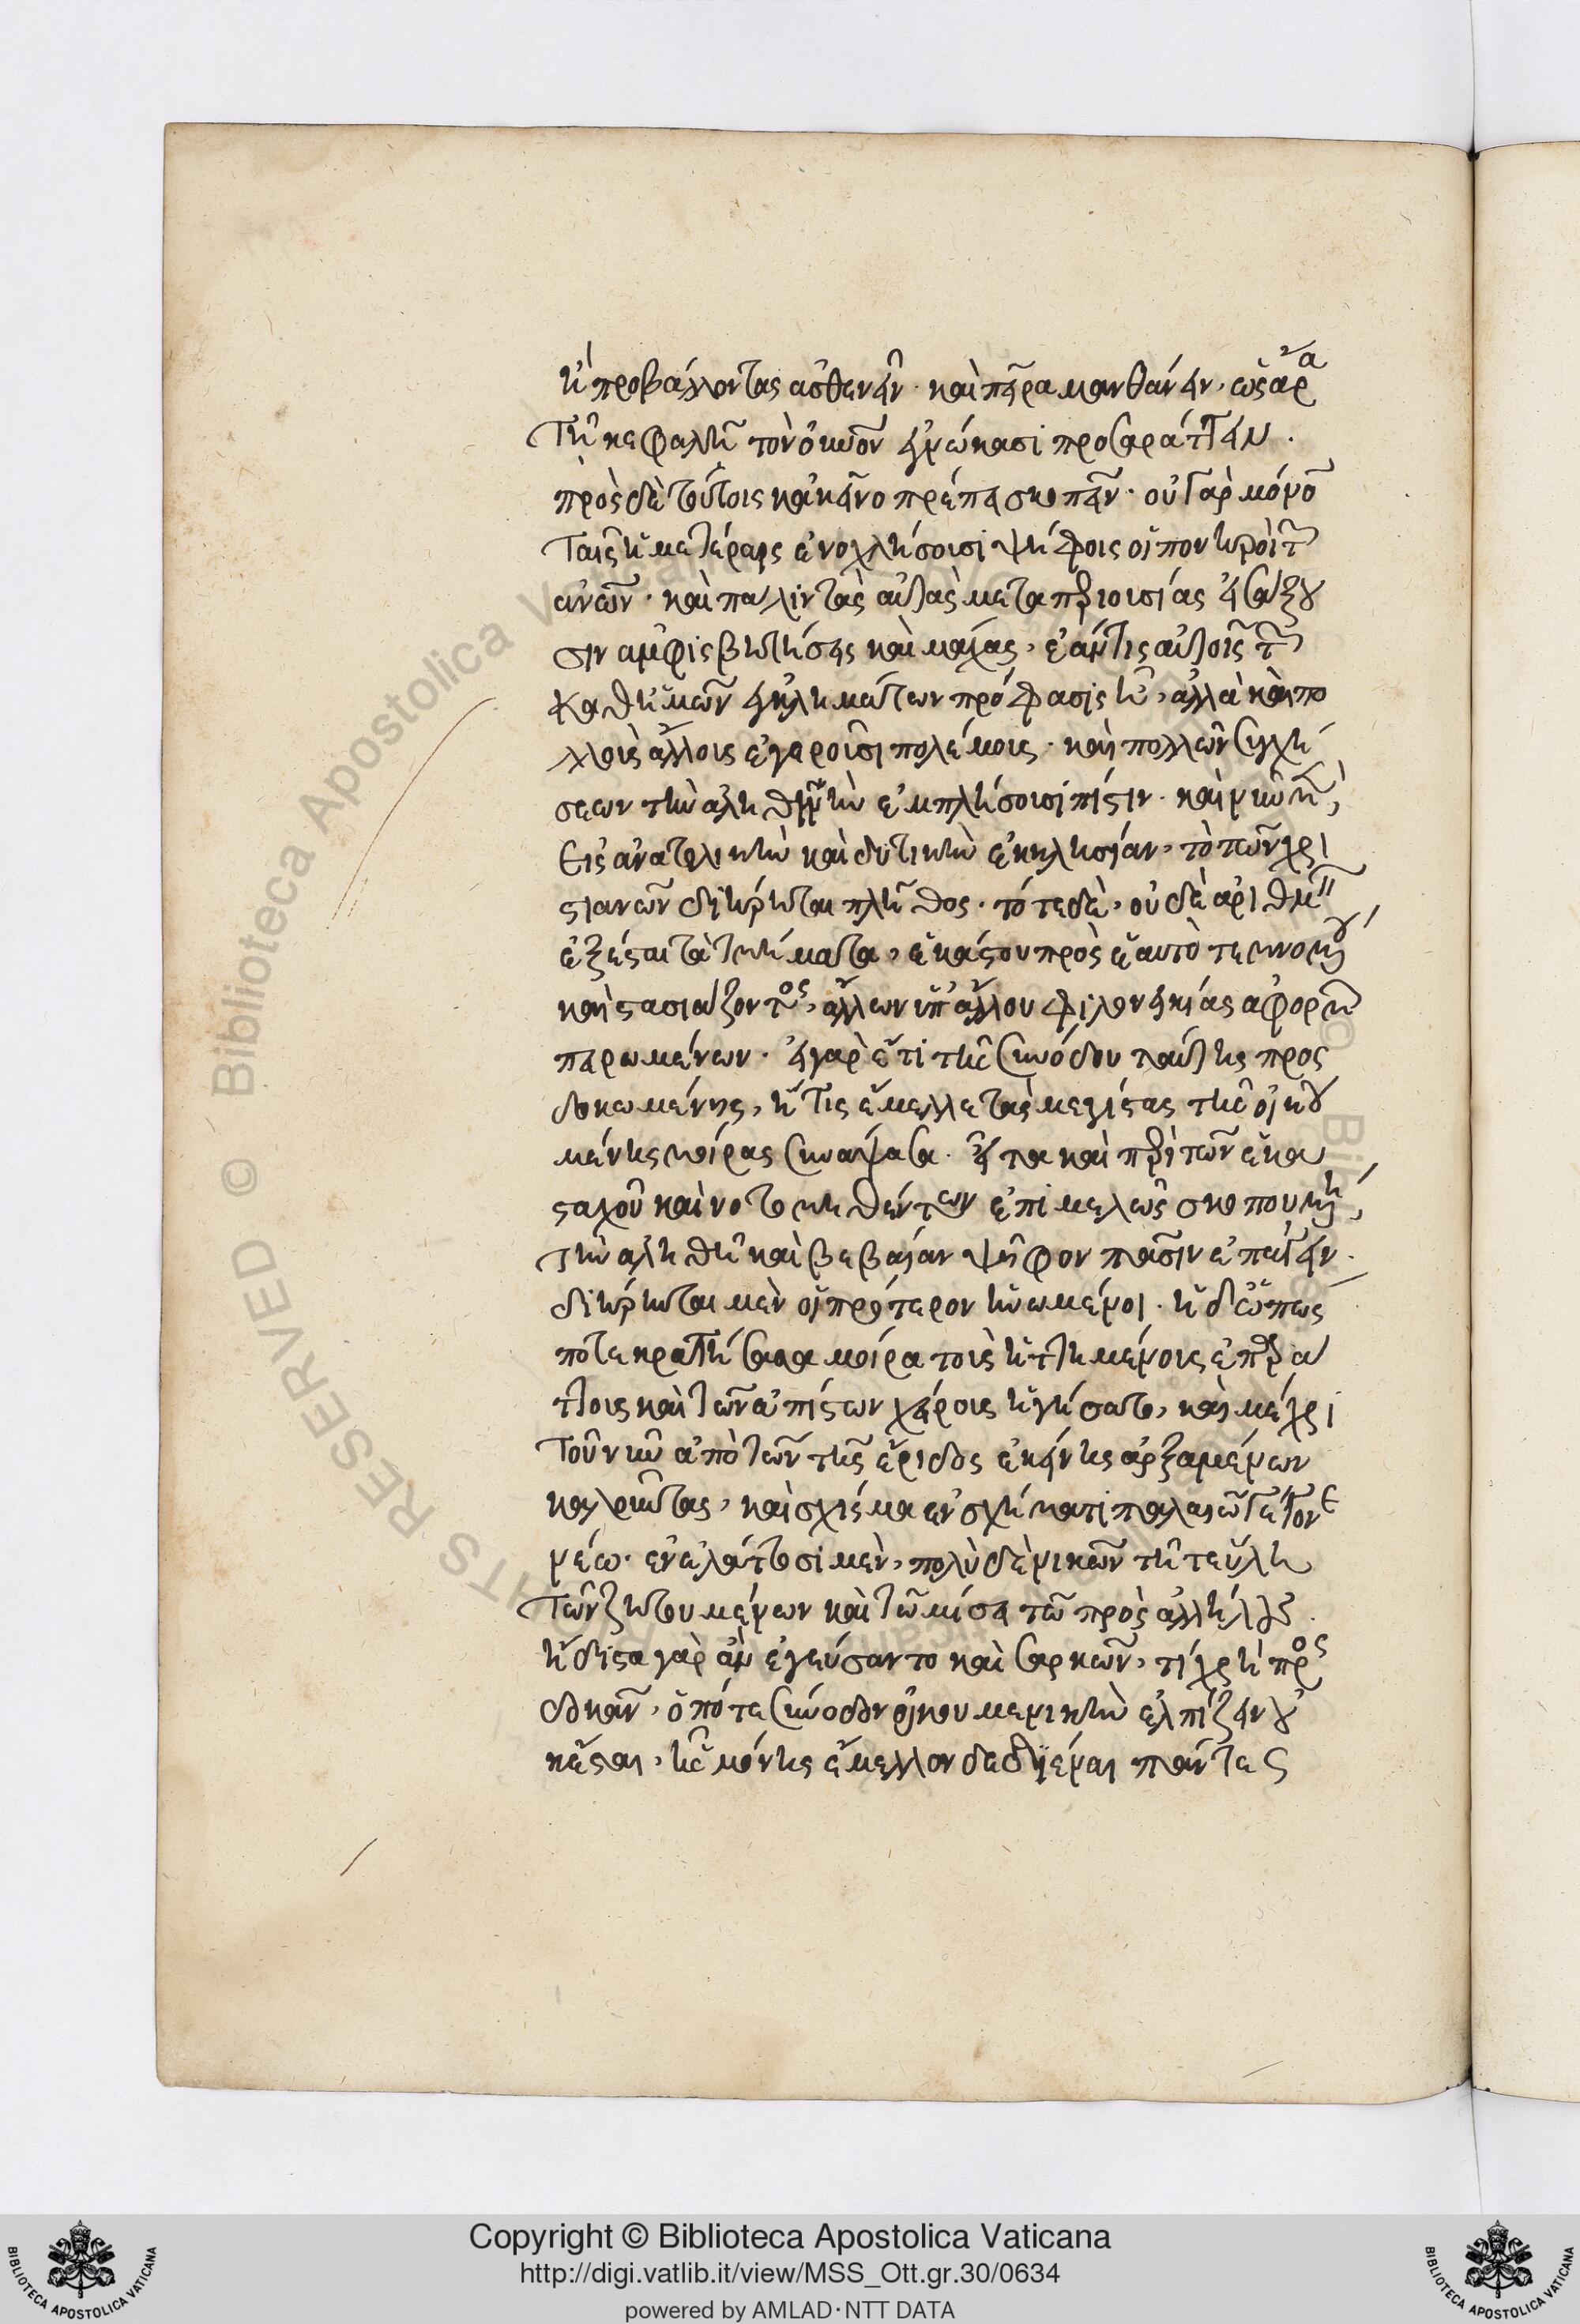 ἢ προβάλλοντας ἀσθενεῖν· καὶ παραμανθάνειν, ὡς ἄρα
τῇ κεφαλῇ τὸν οἰκεῖον ἐγνώκασι προσαράττειν.
πρὸς δὲ τούτοις κἀκεῖνο πρέπει σκοπεῖν· οὐ γὰρ μόνον
ταῖς ἡμετέραις ἐνοχλήσουσι ψήφοις οἱ πονηροὶ
ἐκείνων· καὶ πάλιν τὰς αὐτὰς μετὰ περιουσίας εἰσάξου
σιν ἀμφισβητήσεις καὶ μάχας, ἐάν τις αὐτοῖς τῶν
καθ' ἡμῶν ἐγκλημάτων πρόφασις ᾖ, ἀλλὰ καὶ πο
λλοῖς ἄλλοις ἐγεροῦσι πολέμοις· καὶ πολλῶν συγχύ
σεων τὴν ἀληθινὴν ἐμπλήσουσι πίστιν· καὶ νῦν μὲν
εἰς ἀνατολικὴν καὶ δυτικὴν ἐκκλησίαν, τὸ τῶν χρι
στιανῶν διῄρηται πλῆθος· τότε δὲ, οὐδὲ ἀριθμεῖν
ἐξέσται τὰ τμήματα, ἑκάστου πρὸς ἑαυτὸ τεμνομένου
καὶ στασιάζοντος, ἄλλων ὑπ' ἄλλου φιλονεικίας ἀφορμῇ
πειρωμένων· εἰ γὰρ ἔτι τῆς συνόδου ταύτης προς
δοκωμένης, ἥτις ἔμελλε τὰς μεγίστας τῆς οἰκου
μένης μοίρας συνάψασα· εἶτα καὶ περὶ τῶν ἑκα
σταχοῦ καινοτομηθέντων ἐπιμελῶς σκοπουμένη,
τὴν ἀληθῆ καὶ βεβαίαν ψῆφον πᾶσιν ἐπάγειν.
διῄρηται μὲν οἱ πρότερον ἡνωμένοι· ἡ δ' ὅπως
ποτε κρατήσασα μοῖρα τοὺς ἡττημένους ἐπαράτους
τους καὶ τῶν ἀπίστων χείρους ἡγήσατο, καὶ μέχρι
τοῦ νῦν ἀπὸ τῶν τῆς ἔριδος ἐκείνης ἀρξαμένων
καλοῦνται, καὶ σχίσμα ἐν σχίσματι παλαιῷ γέγονε
νέω· ἐν ἐλάττοσι μὲν, πολὺ δὲ νικῶν τῇ τε ὕλῃ
τῶν ζητουμένων καὶ τῷ μίσει τῷ πρὸς ἀλλήλους.
ἥδιστα γὰρ ἂν ἐγεύσαντο καὶ σαρκῶν, τί χρὴ προς
δοκᾶν, ὁπότε σύνοδον οἰκουμενικὴν ἐλπίζειν οὐκ
ἔσται, ἧς μόνης ἔμελλον δεδιέναι πάντες